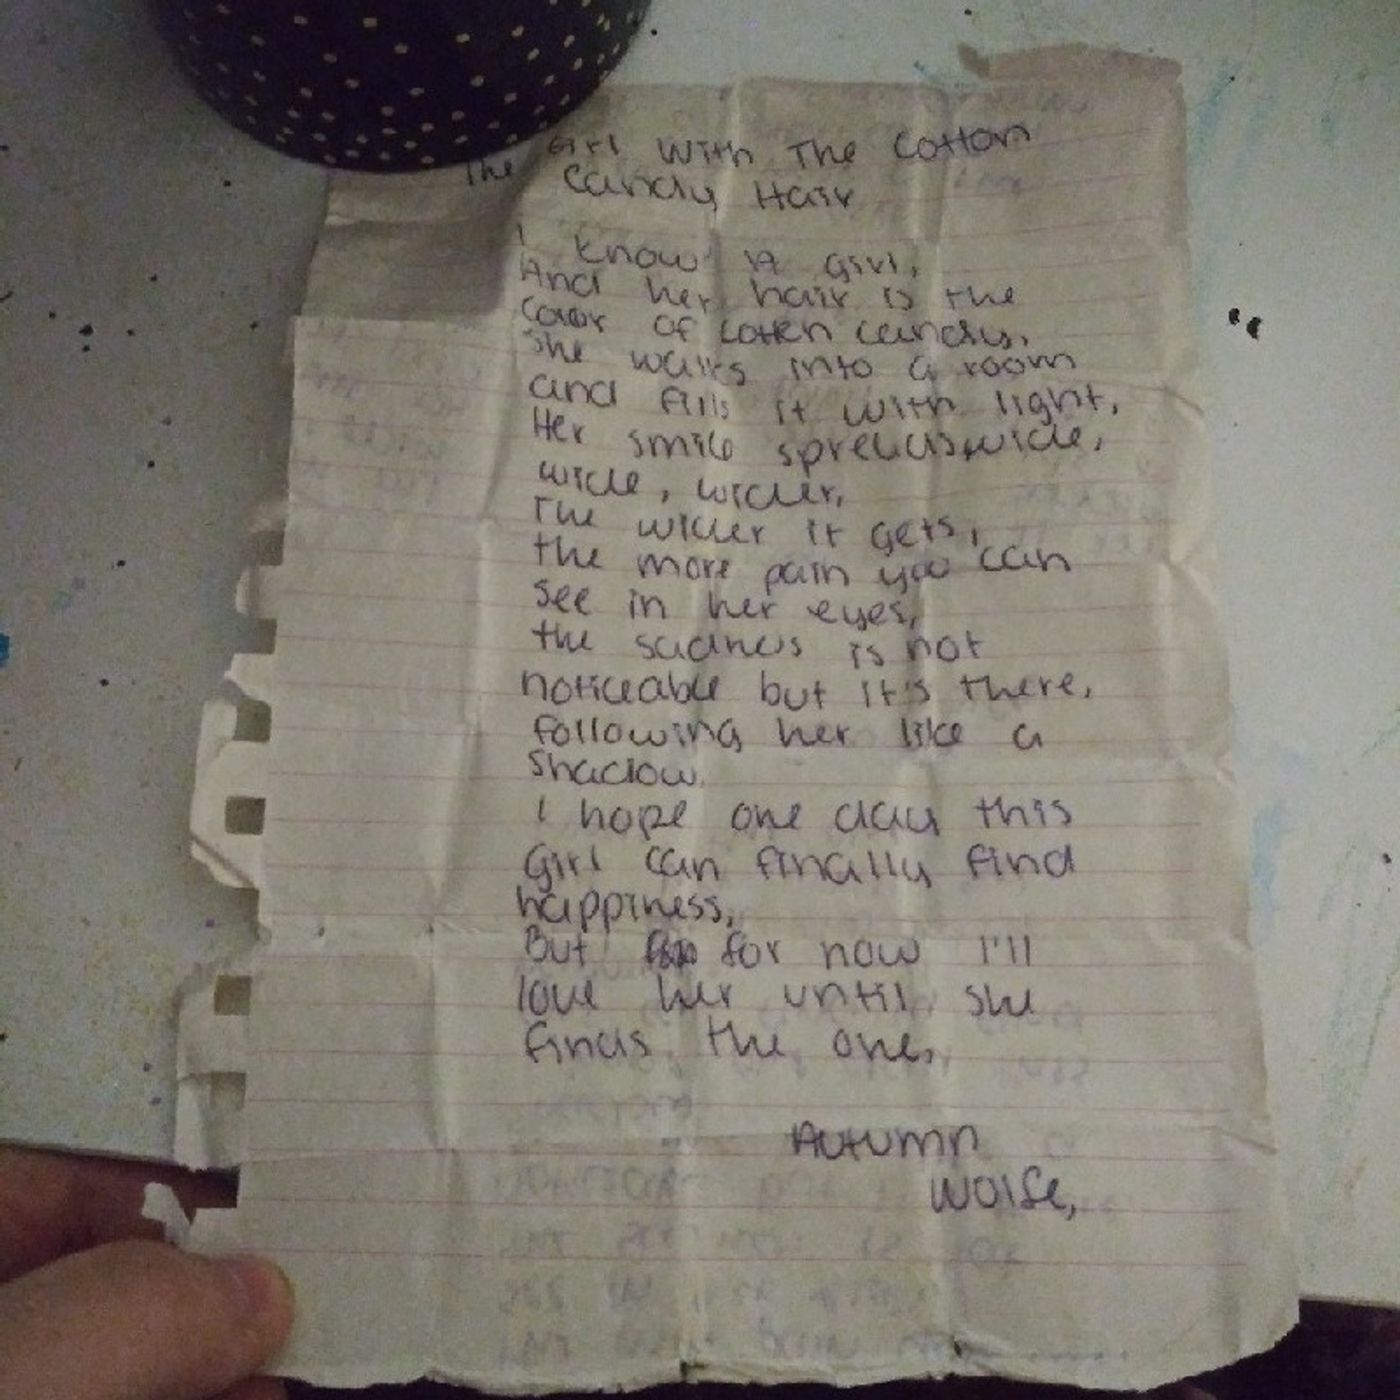 The Girl With The Cotton
Candy Hair
I know A girl,
And her hair is the
color of cotten candy,
She walks into a room
and fills it with light,
Her smile spreads, wide,
wide, wider,
The wider it gets,
the more pain you can
see in her eyes,
the sadness is not
noticeable but it's there,
following her like a
shadow.
I hope one day this
girl can finally find
happiness,
But for now I'll
love her until she
finds the one,
Autumn
Wolfe,